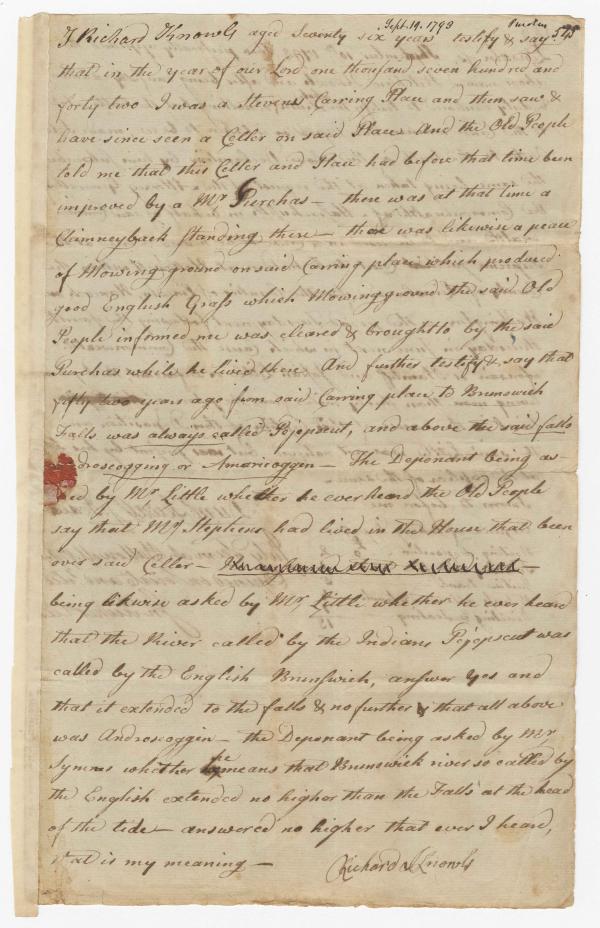 Sept. 19. 1793
545
I Richard Knowls aged Seventy six years testify & say
that in the year of our Lord one thousand seven hundred and
forty two I was a Stevens Carring Place and then saw &
have since seen a Celler on said Place And the Old People
told me that this Celler and Place had before that time been
improved by a Mr. Purchas — there was at that time a
Chimneyback standing there — there was likewise a peace
of Mowing ground on said Carring place which produced
good English Grass which Mowing ground the said Old
People informed me was cleared & brought to by the said
Purchas while he lived there And further testify & say that
fifty two years ago from said Carring place to Brunswich
Falls was always called Pejepscut, and above the said falls
droscogging or Amaricoggen — The Deponant being as-
ked by Mr. Little whether he ever heard the Old People
say that Mr. Stephens had lived in the House that been
over said Celler —
being likwise asked by Mr. Little whether he ever heard
that the River called by the Indians Pejepscut was
called by the English Brunswich, answer yes and
that it extended to the falls & no further & that all above
was Androscoggin — the Deponant being asked by Mr
Symms whether he means that Brunswick river so called by
the English extended no higher than the Falls at the head
of the tide — answered no higher that ever I heard,
that is my meaning — Richard Knowls